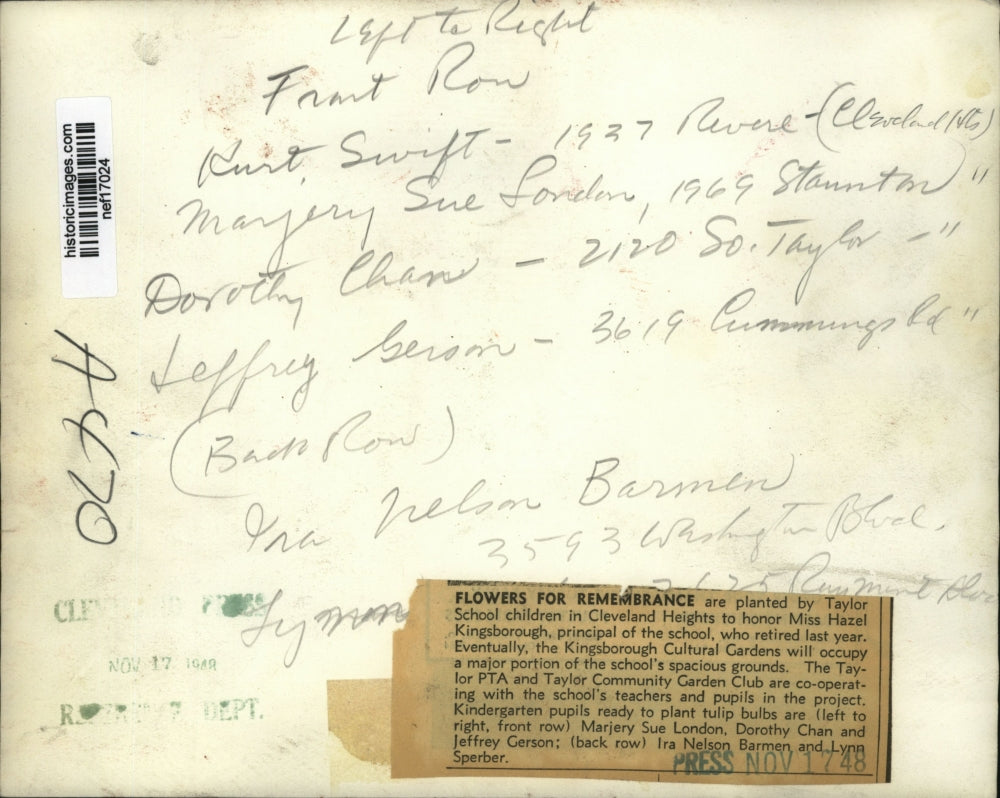 Left to Right
Front Row
Kurt Swift - 1937 Revere - (Cleveland Hts)
Marjery Sue London, 1969 Staunton "
Dorothy Chan - 2120 So. Taylor - "
Jeffrey Gerson - 3619 Cummings Rd "
(Back Row)
Ira Nelson Barmen
3593 Washington Blvd.
historicimages.com
nef17024
CLEVELAND PRESS
NOV 17 1948
REFERENCE DEPT.
FLOWERS FOR REMEMBRANCE are planted by Taylor
School children in Cleveland Heights to honor Miss Hazel
Kingsborough, principal of the school, who retired last year.
Eventually, the Kingsborough Cultural Gardens will occupy
a major portion of the school's spacious grounds. The Tay-
lor PTA and Taylor Community Garden Club are co-operat-
ing with the school's teachers and pupils in the project.
Kindergarten pupils ready to plant tulip bulbs are (left to
right, front row) Marjery Sue London, Dorothy Chan and
Jeffrey Gerson; (back row) Ira Nelson Barmen and Lynn
Sperber.
PRESS NOV 17 48